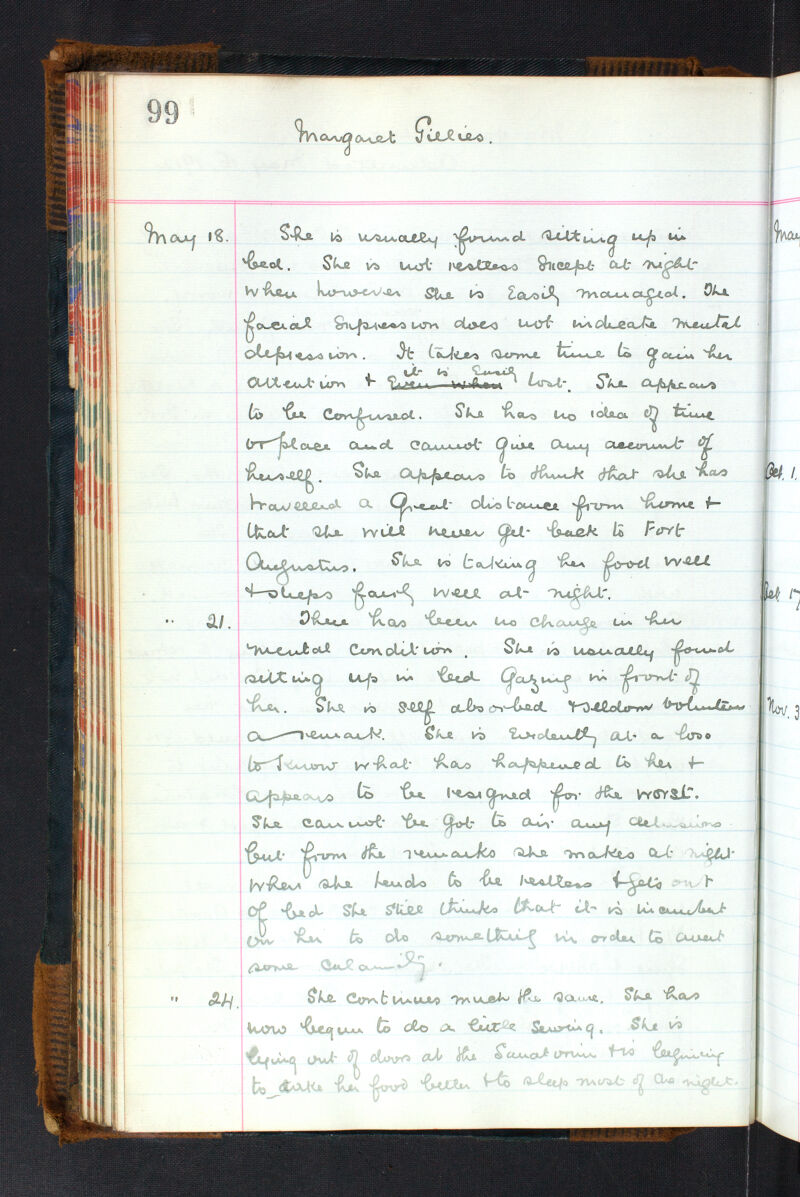 99
Margaret Gillies.
May 18. She is usually found sitting up in
bed. She is not restless except at night
when however she is easily managed. The
facial expression does not indicate mental
depression. It takes some time to gain her
attention & it is easily lost. She appears
to be confused. She has no idea of time
or place and cannot give any account of
herself. She appears to think that she has
travelled a great distance from home &
that she will never get back to Fort
Augustus. She is taking her food well
& sleeps fairly well at night.
" 21. There has been no change in her
mental condition. She is usually found
sitting up in bed gazing in front of
her. She is self absorbed & seldom volunteers
a remark. She is evidently at a loss
to know what has happened to her &
appears to be resigned for the worst.
She cannot be got to air any delusions
but from the remarks she makes at night
when she tends to be restless & gets out
of bed she still thinks that it is incumbent
on her to do something in order to avert
some calamity.
" 24. She continues much the same. She has
now begun to do a little sewing. She is
lying out of doors at the Sanatorium & is beginning
to take her food better & to sleep most of the night.
May
Oct. 1
Oct. 17
Nov. 3